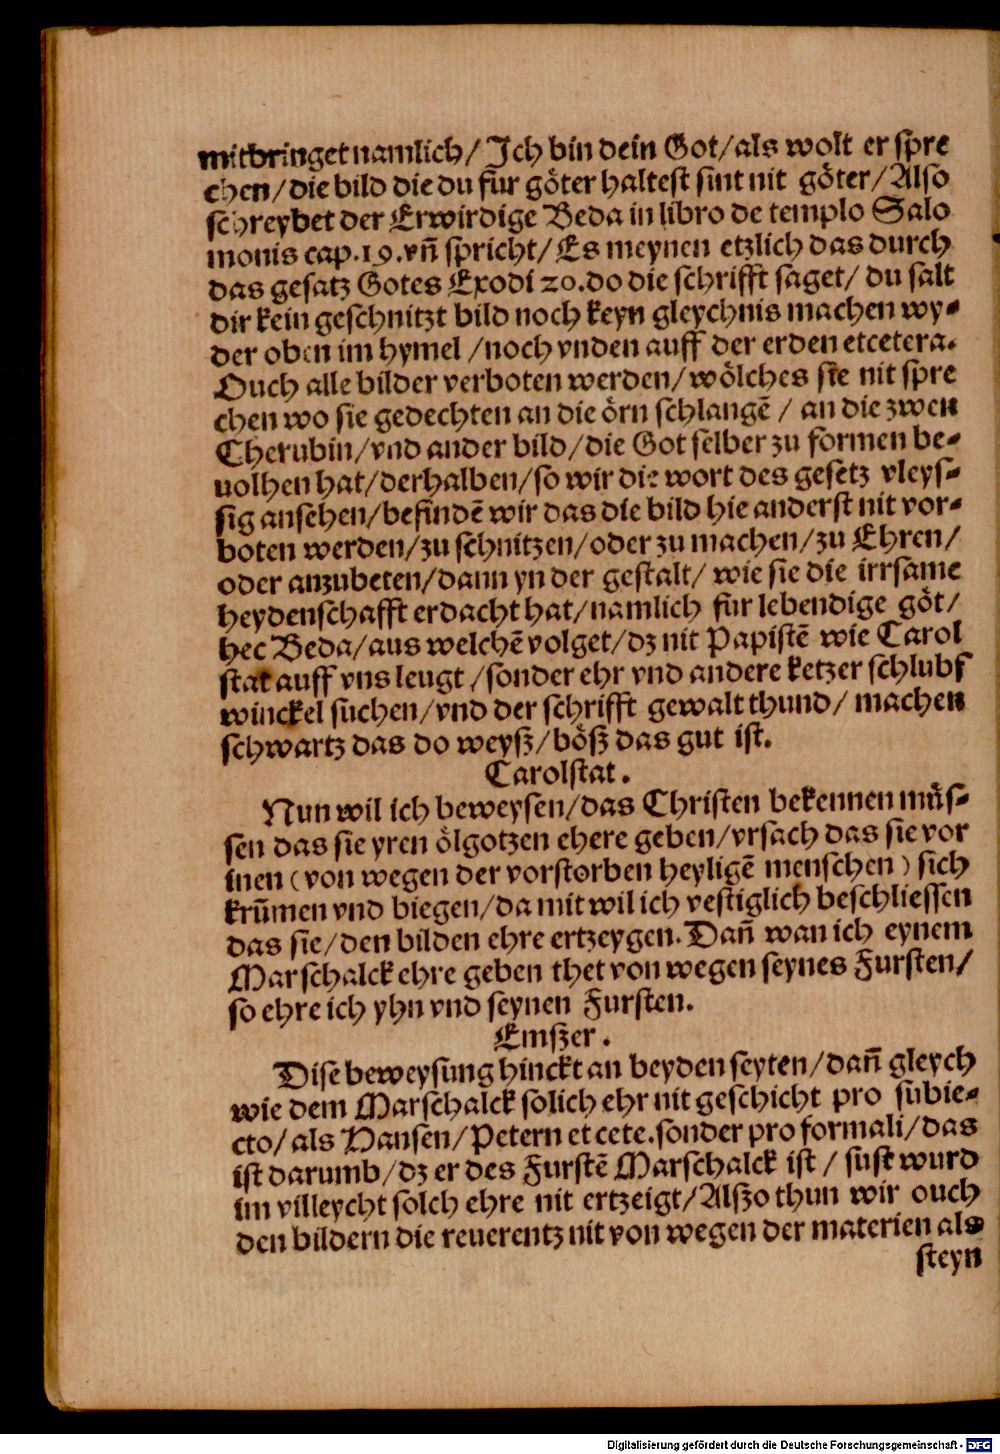 mitbringet namlich/ Ich bin dein Got/als wolt er spre
chen/die bild die du für göter haltest sint nit göter/Also
schreybet der Erwirdige Beda in libro de templo Salo
monis cap.19.vñ spricht/ Es meynen etzlich das durch
das gesatz Gotes Exodi 20.do die schrifft saget/ du salt
dir kein geschnitzt bild noch keyn gleychnis machen wy⸗
der oben im hymel /noch vnden auff der erden etcetera.
Ouch alle bilder verboten werden/wölches sie nit spre
chen wo sie gedechten an die örn schlangē / an die zwen
Cherubin/vnd ander bild/die Got selber zu formen be⸗
uolhen hat/derhalben/so wir die wort des gesetz vleys⸗
sig ansehen/befindē wir das die bild hie anderst nit vor⸗
boten werden/zu schnitzen/oder zu machen/zu Ehren/
oder anzubeten/dann yn der gestalt/ wie sie die irrsame
heydenschafft erdacht hat/namlich für lebendige göt/
hec Beda/aus welchē volget/dz nit Papistē wie Carol
stat auff vns leugt /sonder ehr vnd andere ketzer schlubf
winckel suchen/vnd der schrifft gewalt thund/ machen
schwartz das do weysz/bösz das gut ist.
Carolstat.
Nun wil ich beweysen/das Christen bekennen müs⸗
sen das sie yren ölgotzen ehere geben/vrsach das sie vor
inen (von wegen der vorstorben heyligē menschen) sich
krūmen vnd biegen/da mit wil ich vestiglich beschliessen
das sie/den bilden ehre ertzeygen.Dañ wan ich eynem
Marschalck ehre geben thet von wegen seynes Fursten/
so ehre ich yhn vnd seynen Fursten.
Emszer.
Dise beweysung hinckt an beyden seyten/dañ gleych
wie dem Marschalck solich ehr nit geschicht pro subie⸗
cto/als Hansen/Petern et cete.sonder pro formali/das
ist darumb/dz er des Furstē Marschalck ist / sust wurd
im villeycht solch ehre nit ertzeigt/Alszo thun wir ouch
den bildern die reuerentz nit von wegen der materien als
steyn
Digitalisierung gefördert durch die Deutsche Forschungsgemeinschaft - DFG